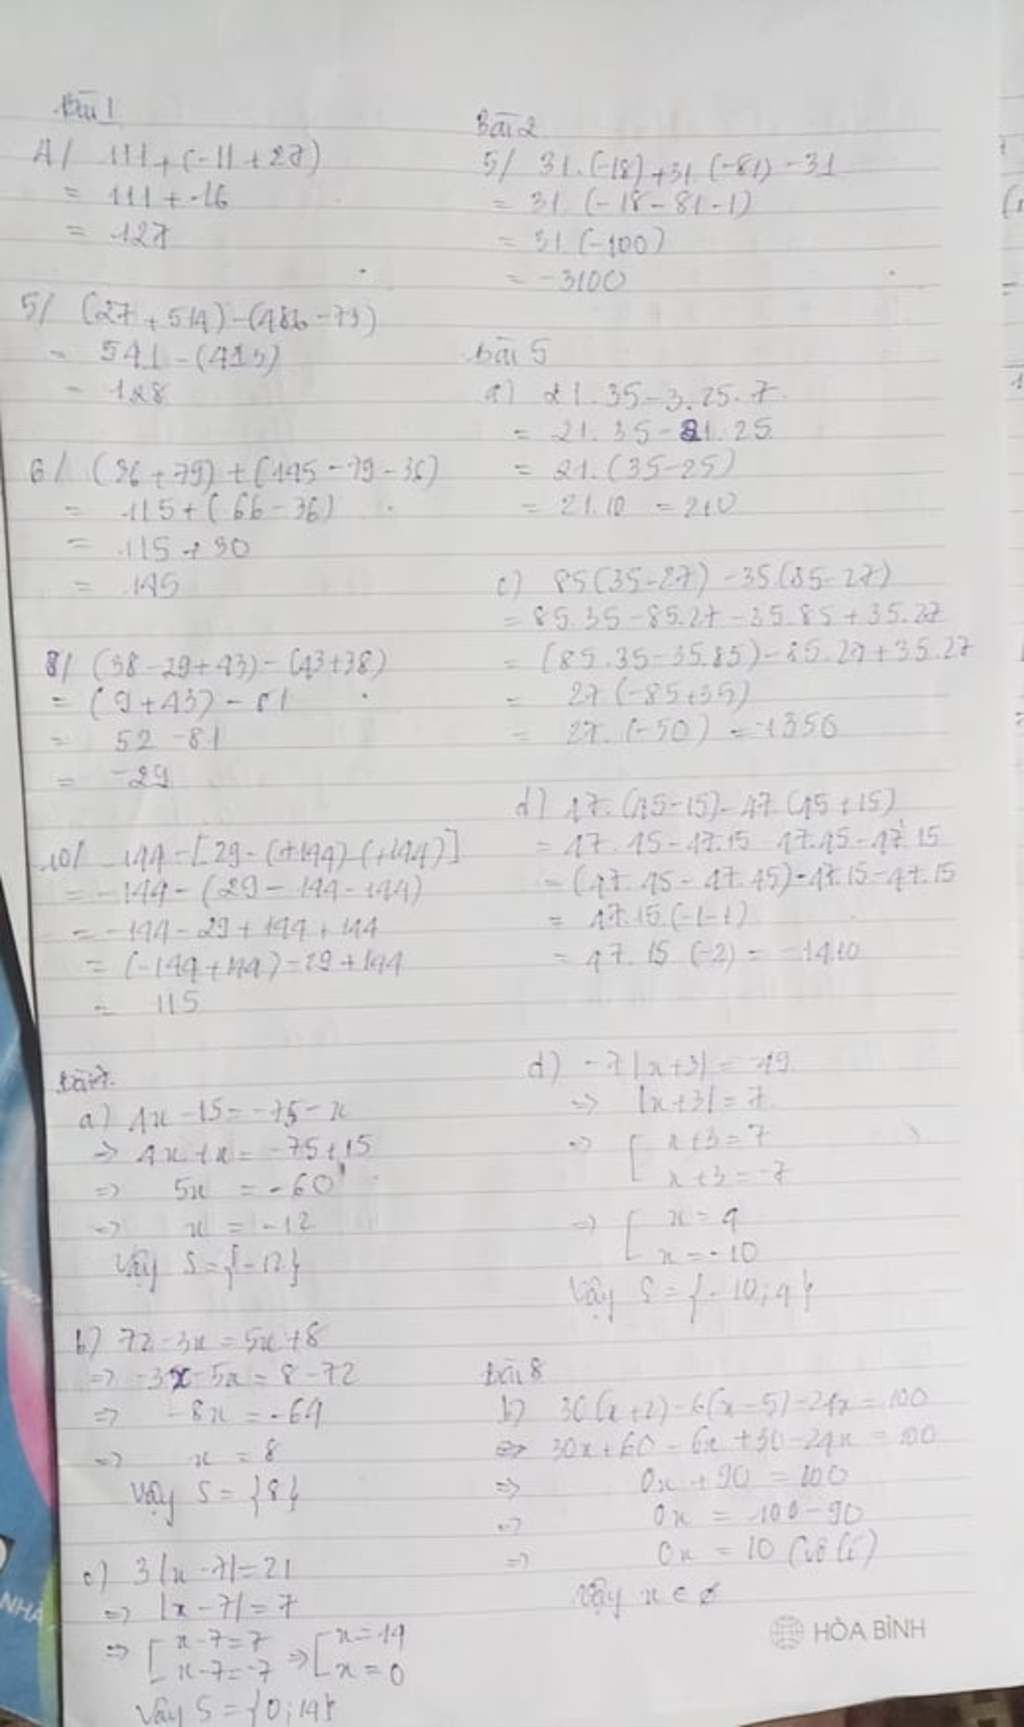 Bài 1
4/ 111 + (-11 + 27)
= 111 + 16
= 127
5/ (27 + 514) - (486 - 73)
= 541 - (413)
= 128
6/ (36 + 79) + (145 - 79 - 36)
= 115 + (66 - 36)
= 115 + 30
= 145
8/ (38 - 29 + 43) - (43 + 38)
= (9 + 43) - 81
= 52 - 81
= -29
10/ -144 - [29 - (+144) - (+144)]
= -144 - (29 - 144 - 144)
= -144 - 29 + 144 + 144
= (-144 + 144) - 29 + 144
= 115
Bài 7
a) 4x - 15 = -75 - x
=> 4x + x = -75 + 15
=> 5x = -60
=> x = -12
Vậy S = {-12}
b) 72 - 3x = 5x + 8
=> -3x - 5x = 8 - 72
=> -8x = -64
=> x = 8
Vậy S = {8}
c) 3|x - 7| = 21
=> |x - 7| = 7
=> [ x - 7 = 7 => [ x = 14
x - 7 = -7 x = 0
Vậy S = {0; 14}
Bài 2
5/ 31.(-18) + 31.(-81) - 31
= 31.(-18 - 81 - 1)
= 31.(-100)
= -3100
Bài 5
a) 21.35 - 3.25.7
= 21.35 - 21.25
= 21.(35 - 25)
= 21.10 = 210
c) 85(35 - 27) - 35(85 - 27)
= 85.35 - 85.27 - 35.85 + 35.27
= (85.35 - 35.85) - 85.27 + 35.27
= 27(-85 + 35)
= 27.(-50) = -1350
d) 47.(45 - 15) - 47.(45 + 15)
= 47.45 - 47.15 - 47.45 - 47.15
= (47.45 - 47.45) - 47.15 - 47.15
= 47.15(-1 - 1)
= 47.15.(-2) = -1410
d) -7|x + 3| = -49
=> |x + 3| = 7
=> [ x + 3 = 7
x + 3 = -7
=> [ x = 4
x = -10
Vậy S = {-10; 4}
Bài 8
b) 30(x + 2) - 6(x - 5) - 24x = 100
=> 30x + 60 - 6x + 30 - 24x = 100
=> 0x + 90 = 100
=> 0x = 100 - 90
=> 0x = 10 (vô lí)
Vậy x ∈ ∅
HÒA BÌNH